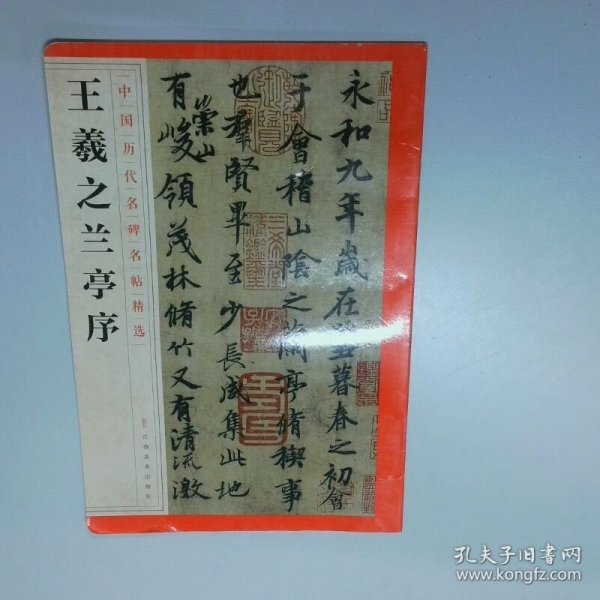 中国历代名碑名帖精选
王羲之兰亭序
江西美术出版社
永和九年歲在暮春之初會
于會稽山陰之蘭亭脩稧事
也羣賢畢至少長咸集此地
有崇山峻領茂林脩竹又有清流激
孔夫子旧书网
www.kongfz.com